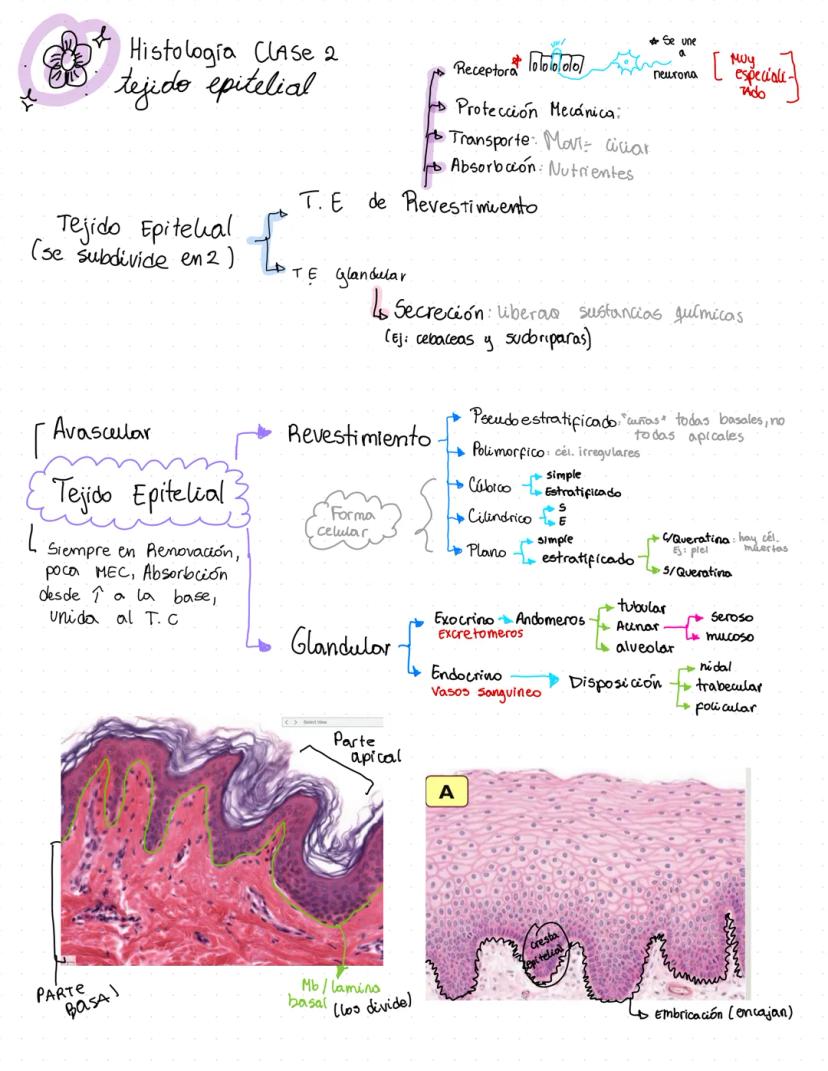 Histología Clase 2
tejido epitelial
Receptora*
* Se une
a
neurona
[Muy
especiali-
zado]
Protección Mecánica:
Transporte: Movi= ciliar
Absorbción: Nutrientes
Tejido Epitelial
(se subdivide en 2)
T.E de Revestimiento
T.E Glandular
Secreción: liberaq sustancias químicas
(Ej: cebaceas y sudoriparas)
Avascular
Tejido Epitelial
Siempre en Renovación,
poca MEC, Absorbción
desde ↑ a la base,
unida al T.C
Revestimiento
Forma
celular
Pseudoestratificado: "cuñas" todas basales, no
todas apicales
Polimorfico: cél. irregulares
Cúbico
simple
Estratificado
Cilindrico
S
E
Plano
simple
estratificado
C/Queratina: hay cél.
muertas
Ej: piel
S/Queratina
Glandular
Exocrino
excretomeros
Andomeros
tubular
Acinar
alveolar
seroso
mucoso
Endocrino
Vasos sanguineo
Disposición
nidal
trabecular
folicular
Select View
Parte
apical
PARTE
BASAl
Mb/lamina
basal (los divide)
A
Cresta
epitelial
Embricación (encajan)